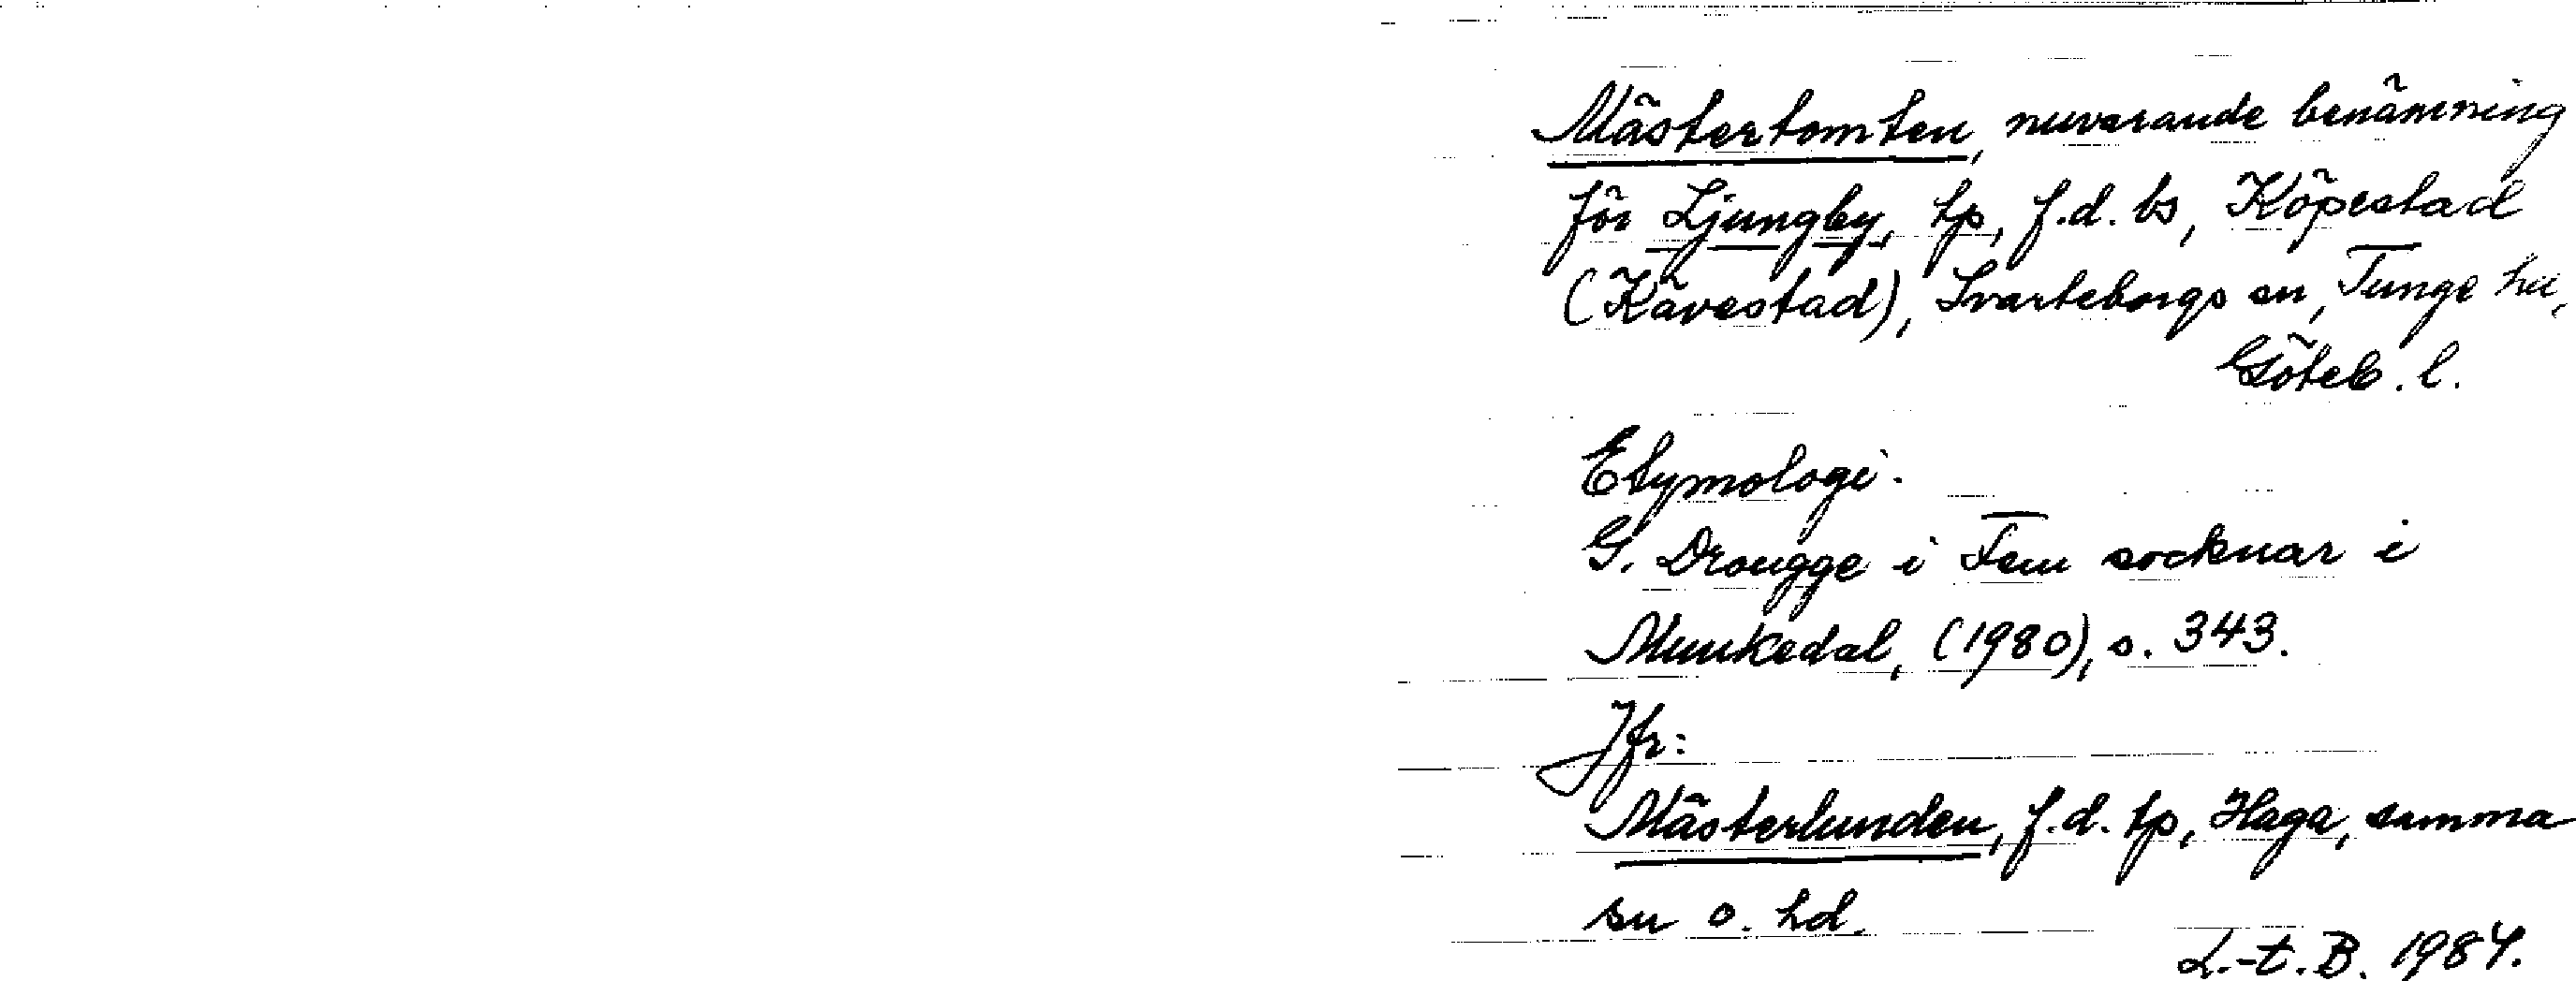 Mästertomten, nuvarande benämning
för Ljungby, tp, f.d. bs, Köpestad
(Kävestad), Svarteborgs sn, Tunge hd,
Göteb. l.
Etymologi.
G. Drougge i Fem socknar i
Munkedal, (1980), s. 343.
Jfr:
Mästerlunden, f.d. tp, Haga, samma
sn o. hd.
L.-t. B. 1984.